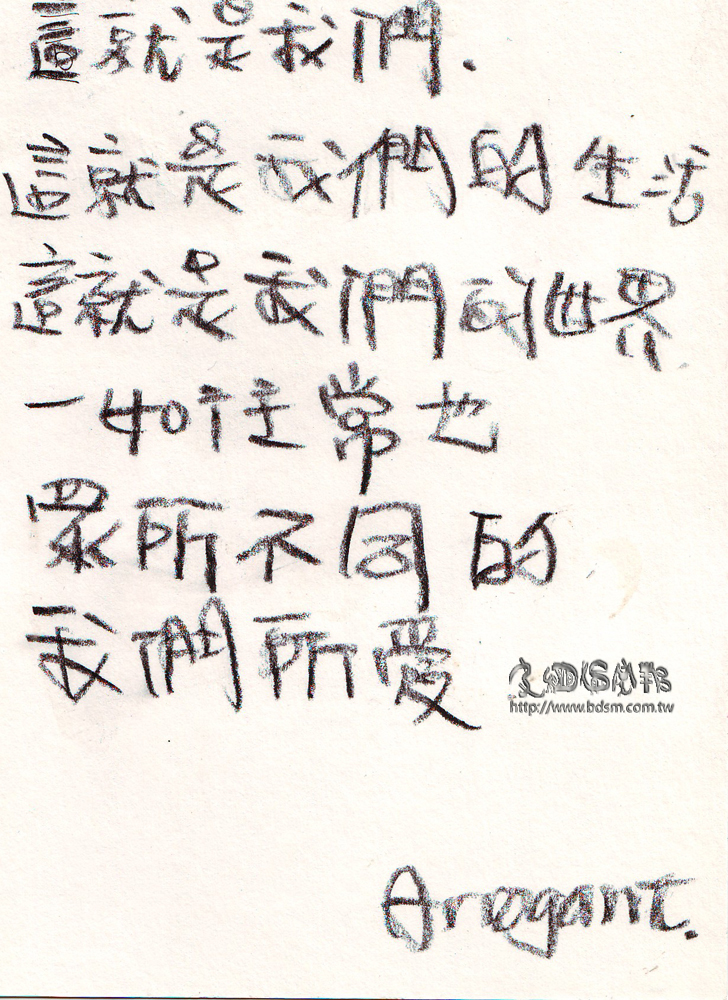 這就是我們.
這就是我們的生活
這就是我們的世界
一如往常也
眾所不同的
我們所愛
http://www.bdsm.com.tw
Arrogant.